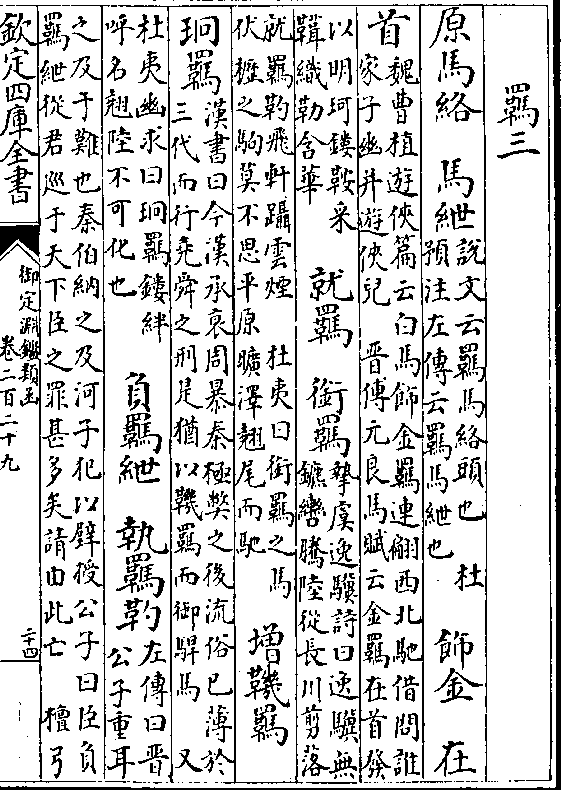 羈三
原馬絡　馬紲說文云羈馬絡頭也　杜
預注左傳云羈馬紲也　飾金　在
首魏曹植遊俠篇云白馬飾金羈連翩西北馳借問誰
家子幽并遊俠兒　晉傅元良馬賦云金羈在首發
以明珂鏤鞍采
鞿織勒含華　就羈　銜羈摯虞逸驥詩曰逸驥無
鑣轡騰陸從長川剪落
就羈靮飛軒躡雲煙　杜夷曰銜羈之馬
伏櫪之駒莫不思平原曠澤翹尾而馳　增鞿羈
珂羈漢書曰今漢承衰周暴秦極弊之後流俗已薄於
三代而行堯舜之刑是猶以鞿羈而御駻馬　又
杜夷幽求曰珂羈鏤絆
呼名翹陸不可化也　負羈紲　執羈靮左傳曰晉
公子重耳
之及于難也秦伯納之及河子犯以璧授公子曰臣負
羈紲從君巡于天下臣之罪甚多矣請由此亡　檀弓
欽定四庫全書
御定淵鑑類函
卷二百二十九
二十四